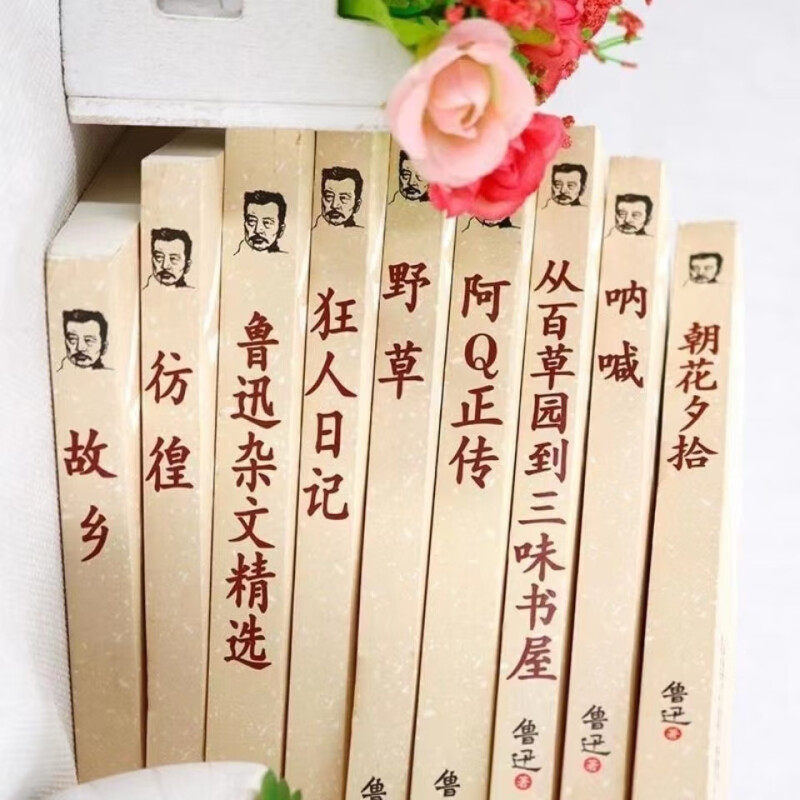 故乡
彷徨
鲁迅杂文精选
狂人日记
野草
鲁
阿Q正传
鲁
从百草园到三味书屋
鲁迅著
呐喊
鲁迅著
朝花夕拾
鲁迅著